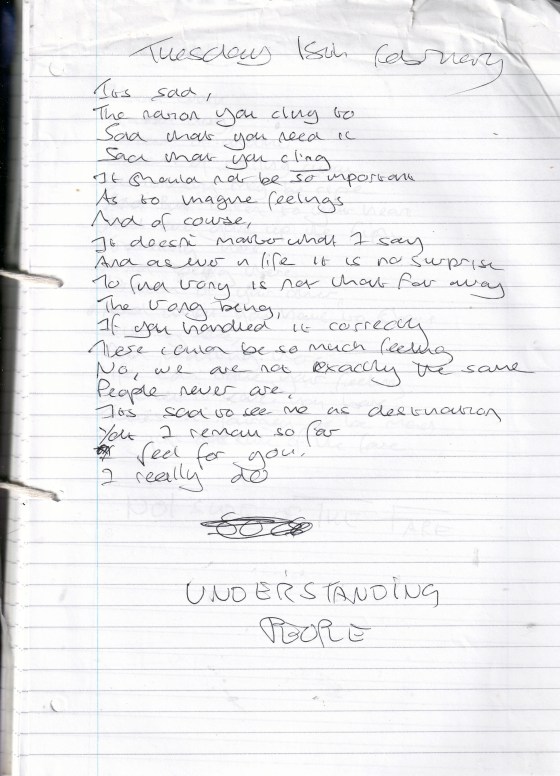 Tuesday 15th February
Its sad,
The reason you cling to
Sad that you need it
Sad that you cling
It should not be so important
As to imagine feelings
And of course,
It doesnt matter what I say
And as ever in life it is no surprise
To find irony is not that far away
The irony being,
If you handled it correctly
There could be so much feeling
No, we are not exactly the same
People never are,
Its sad to see me as destination
Yet I remain so far
I feel for you.
I really do
UNDERSTANDING
PEOPLE